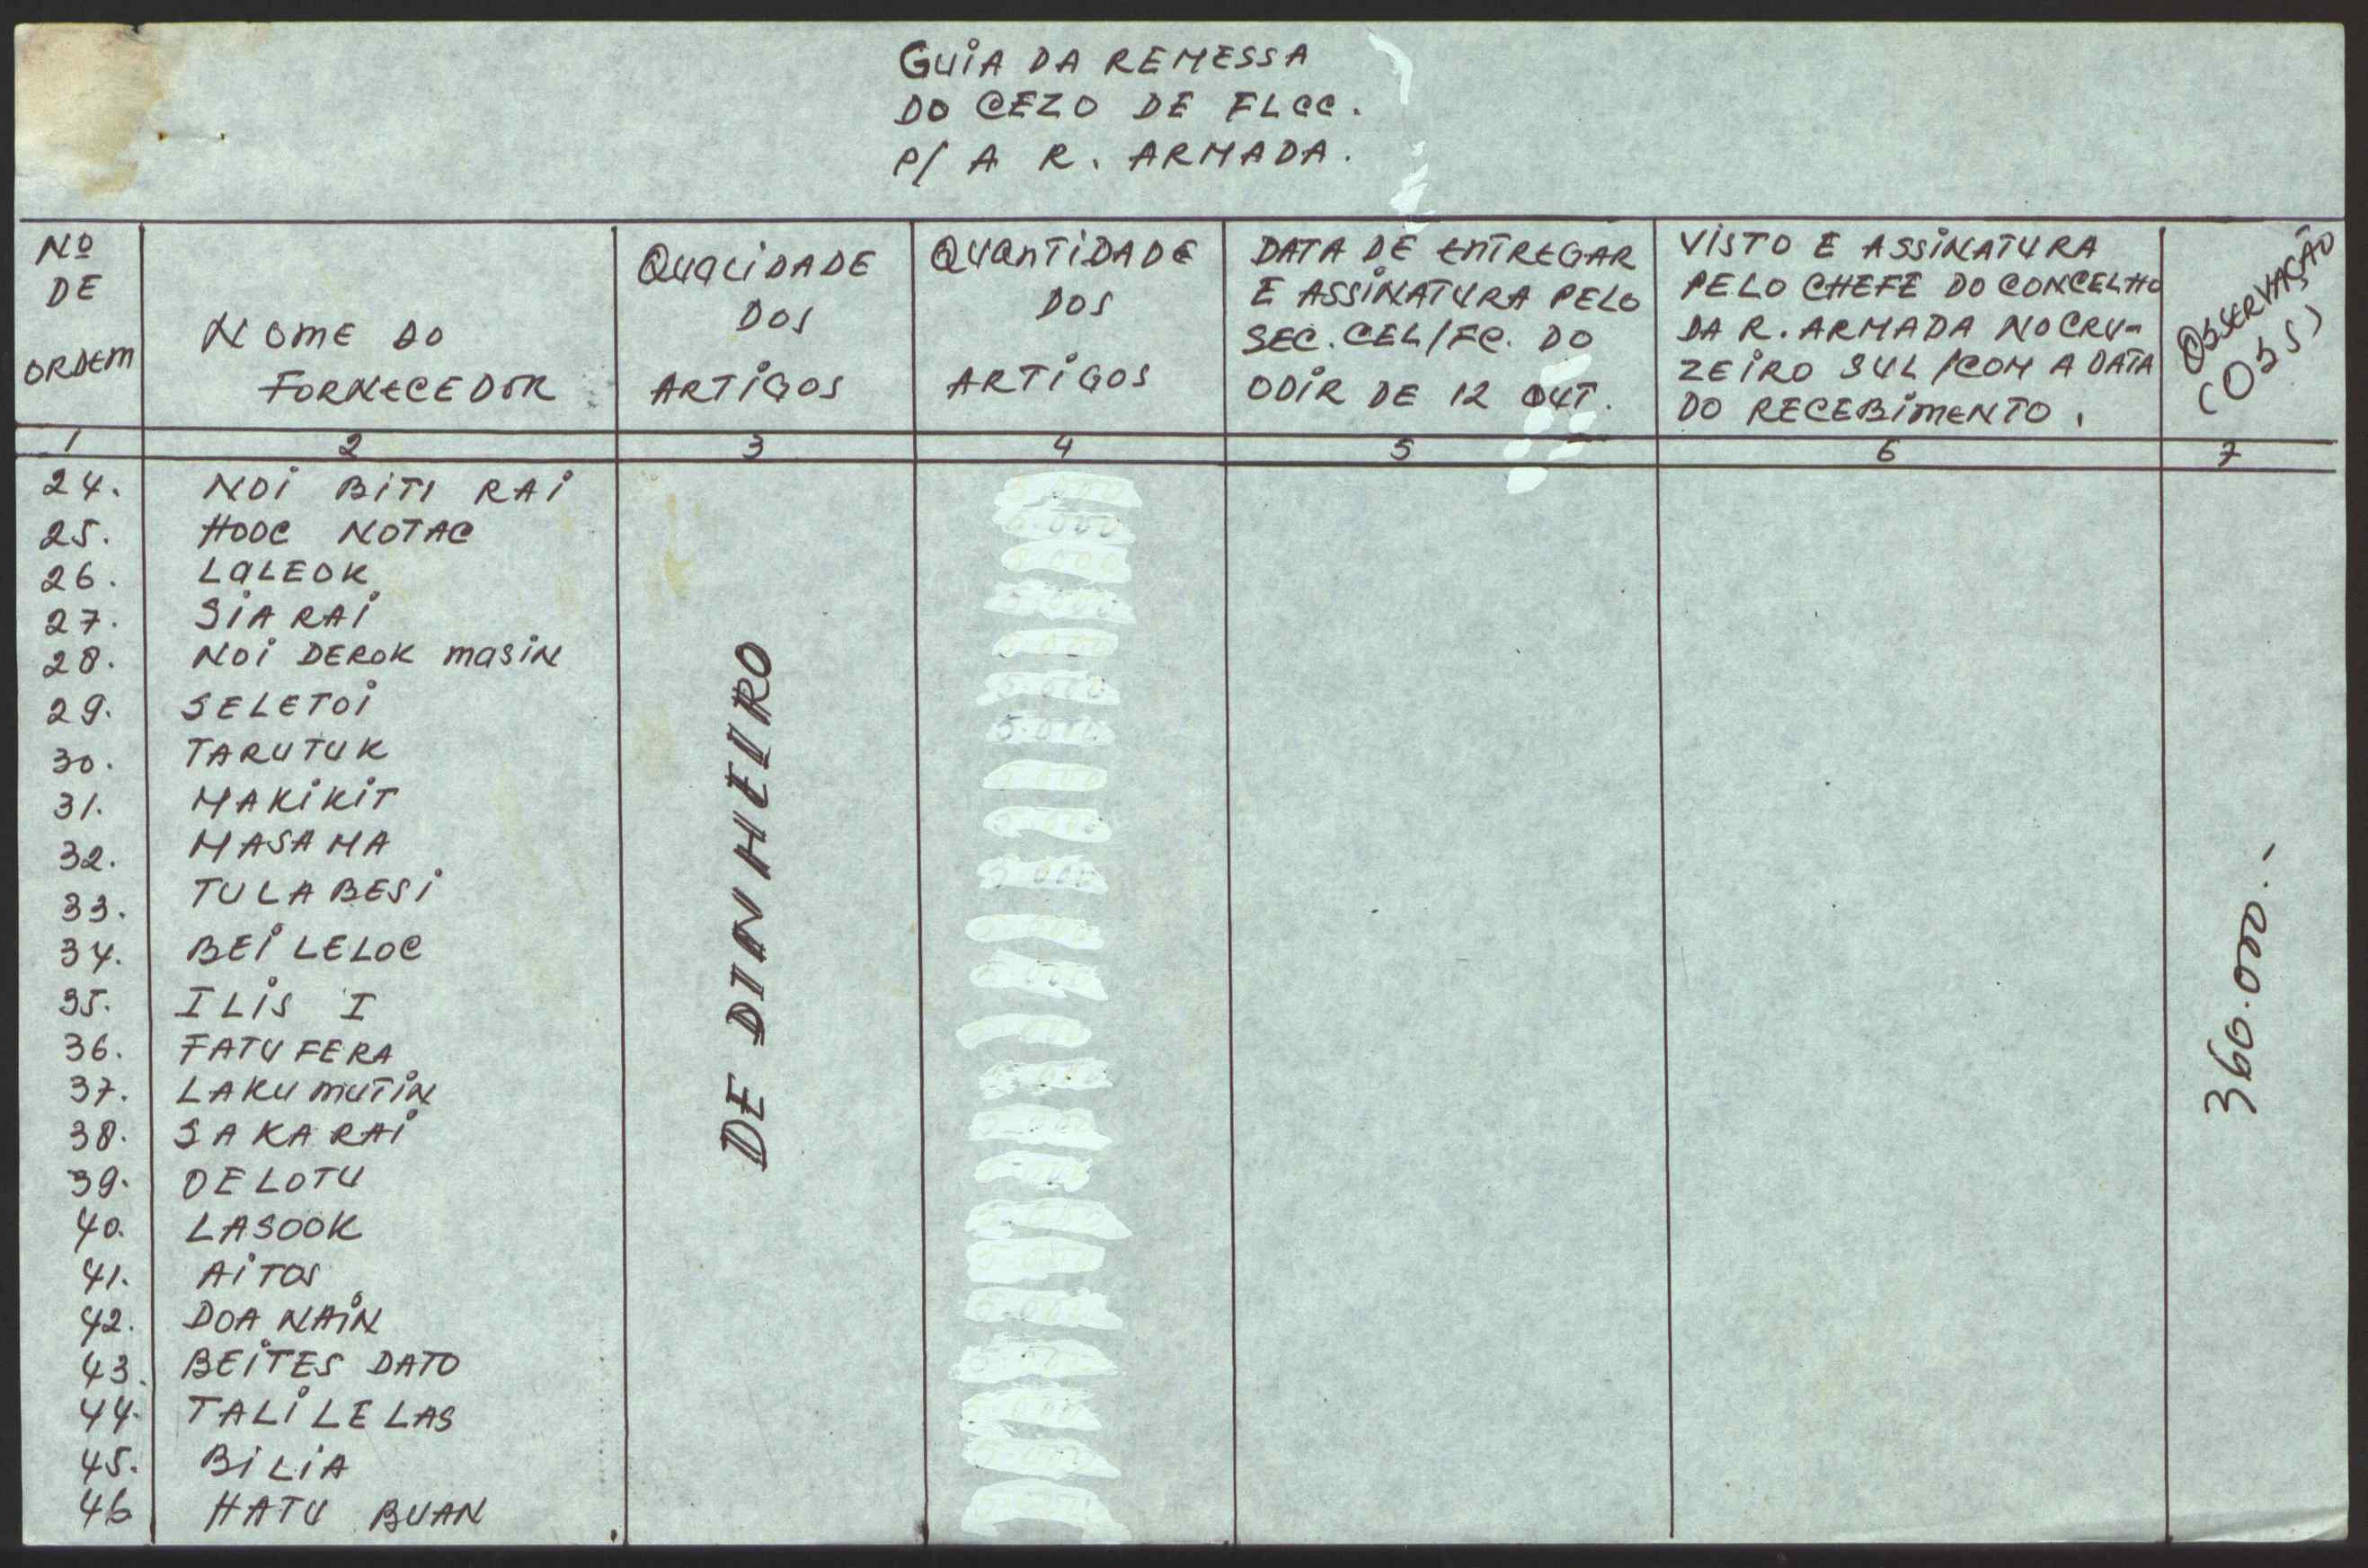 GUIA DA REMESSA
DO CEZO DE FLCC.
P/ A R. ARMADA.
Nº DE ORDEM
NOME DO FORNECEDOR
QUALIDADE DOS ARTIGOS
QUANTIDADE DOS ARTIGOS
DATA DE ENTREGAR
E ASSINATURA PELO
SEC. CEL/FC. DO
ODIR DE 12 OUT.
VISTO E ASSINATURA
PELO CHEFE DO CONCELHO
DA R. ARMADA NO CRU-
ZEIRO SUL /COM A DATA
DO RECEBIMENTO.
OBSERVAÇÃO
(OBS)
1 2 3 4 5 6 7
24. NOI BITI RAI
25. HOOC NOTAC
26. LALEOK
27. SIA RAI
28. NOI DEROK MASIN
29. SELETOI
30. TARUTUK
31. MAKIKIT
32. MASAMA
33. TULA BESI
34. BEI LELOC
35. ILIS I
36. FATU FERA
37. LAKU MUTIN
38. SAKARAI
39. OELOTU
40. LASOOK
41. AITOS
42. DOA NAIN
43. BEITES DATO
44. TALILELAS
45. BILIA
46 HATU BUAN
DE DINHEIRO
360.000.-